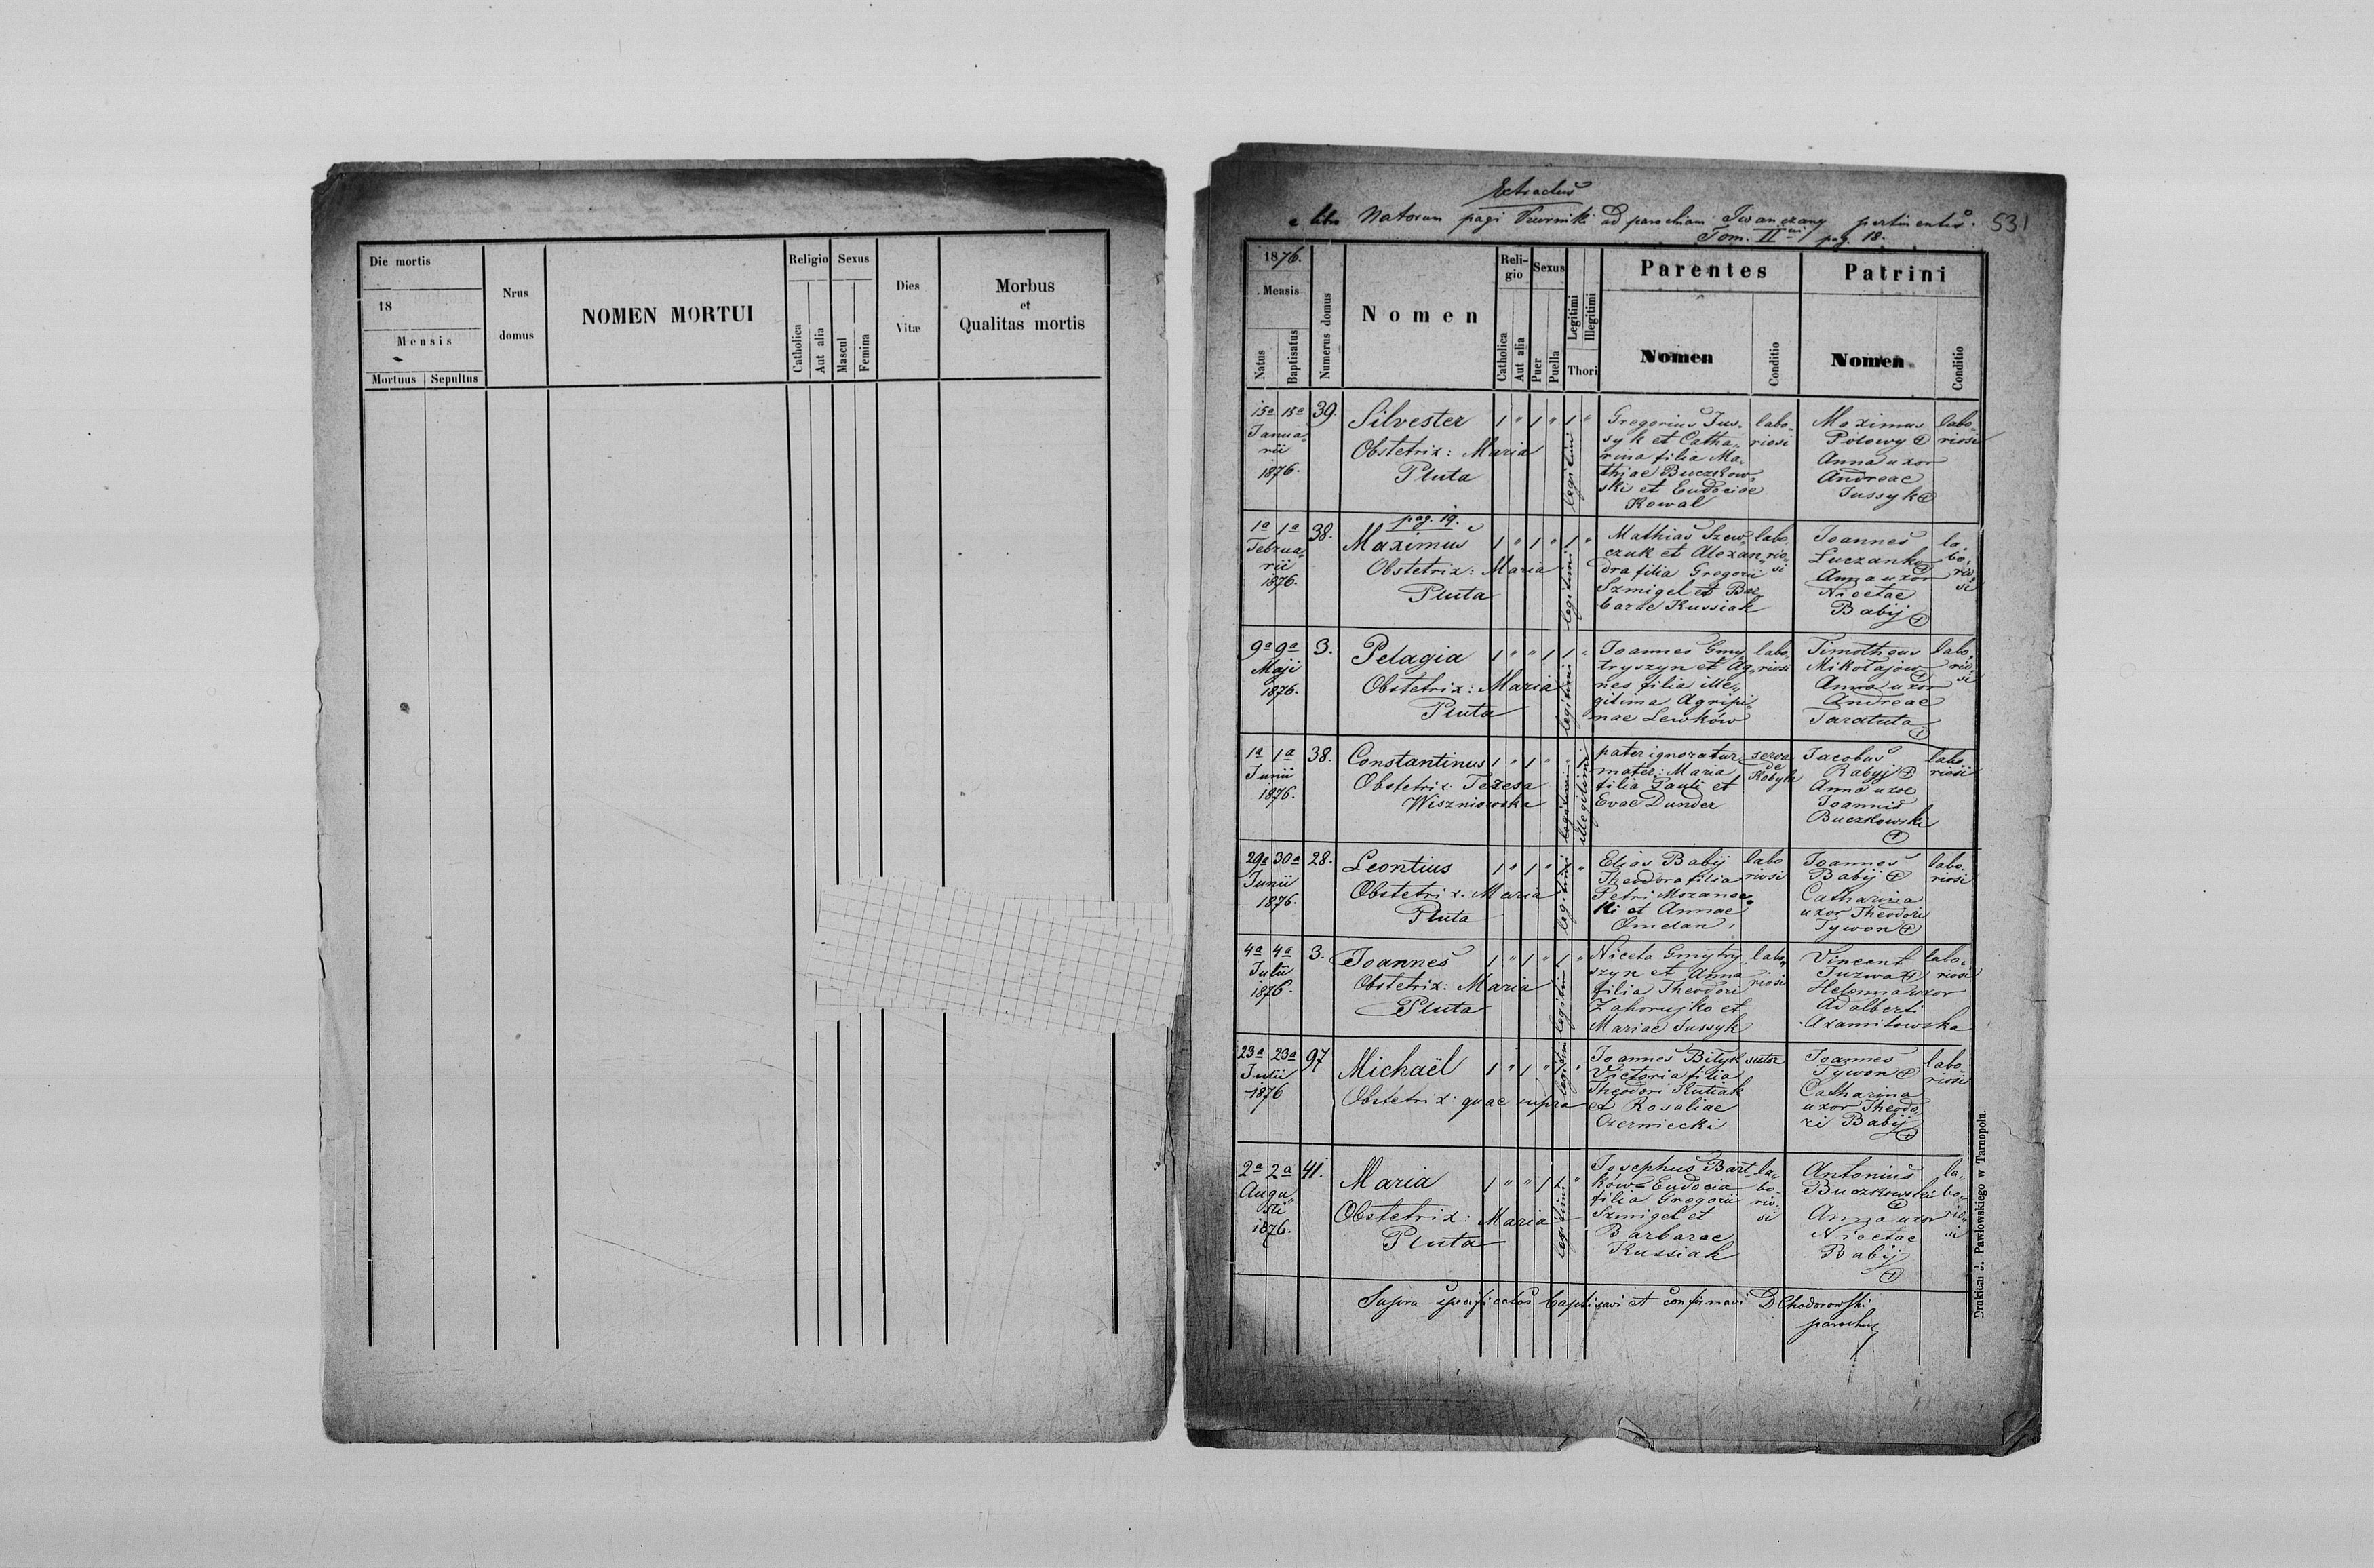 Die mortis
18
Mensis
Mortuus Sepultus
Nrus
domus
NOMEN MORTUI
Religio
Catholica
Aut alia
Sexus
Mascul
Femina
Dies
Vitæ
Morbus
et
Qualitas mortis
Extractus
e libro Natorum pagi ad parochiam Iwanczany pertinentis. 531
Tom. II pag. 18.
1876.
Mensis
Natus
Baptisatus
Numerus domus
Nomen
Religio
Catholica
Aut alia
Sexus
Puer
Puella
Legitimi
Illegitimi
Thori
Parentes
Nomen
Conditio
Patrini
Nomen
Conditio
15a 15a
Janua-
rii
1876.
39.
Silvester
Obstetrix: Maria
Pluta
1 " 1 " 1 "
legitimi
Gregorius Jus-
syk et Catha-
rina filia Ma-
thiae Buczkow-
ski et Eudociae
Kowal
labo-
riosi
Maximus
Polowy +
Anna uxor
Andreae
Jussyk +
labo-
riosi
1a 1a
Februa-
rii
1876.
38.
pag. 19.
Maximus
Obstetrix: Maria
Pluta
1 " 1 " 1 "
legitimi
Mathias Szew-
czuk et Alexan-
dra filia Gregorii
Szmigel et Bar-
barae Kussiak
labo-
rio-
si
Joannes
Łuczanko +
Anna uxor
Nicetae
Babij +
la-
bo-
rio-
si
9a 9a
Maji
1876.
3.
Pelagia
Obstetrix: Maria
Pluta
1 " " 1 1 "
legitimi
Joannes Gmy-
tryszyn et Ag-
nes filia ille-
gitima Agripi-
nae Lewków
labo-
riosi
Timotheus
Mikołajow +
Anna uxor
Andreae
Taratuta
+
labo-
rio-
si
1a 1a
Junii
1876.
38.
Constantinus
Obstetrix: Teresa
Wiszniowska
1 " 1 "
illegitimi
pater ignoratur
mater: Maria
filia Pauli et
Evae Dunder
serva
de
Kobyla
Jacobus
Babyj +
Anna uxor
Joannis
Buczkowski
+
labo-
riosi
29a 30a
Junii
1876.
28.
Leontius
Obstetrix: Maria
Pluta
1 " 1 " "
legitimi
Elias Babij
Theodora filia
Petri Mozanow-
ki et Annae
Omelan
labo
riosi
Joannes
Babij +
Catharina
uxor Theodori
Tywon +
labo-
riosi
4a 4a
Julii
1876.
3.
Joannes
Obstetrix: Maria
Pluta
1 " 1 " 1 "
legitimi
Niceta Gmytry-
szyn et Anna
filia Theodori
Zahorujko et
Mariae Jussyk
labo-
riosi
Vincent
Juzwa +
Helenna uxor
Adalberti
Axamitowska
labo-
riosi
23a 23a
Julii
1876
97
Michaël
Obstetrix: quae supra
1 " 1 " "
legitimi
Joannes Bityk
Victoria filia
Theodori Kutiak
et Rosaliae
Czerniecki
sutor
Joannes
Tywon +
Catharina
uxor Theodo-
ri Babij
+
labo-
riosi
2a 2a
Augu-
sti
1876.
41.
Maria
Obstetrix: Maria
Pluta
1 " " 1 1 "
legitimi
Josephus Bart-
ków Eudocia
filia Gregorii
Szmigel et
Barbarae
Kussiak
la-
bo-
rio-
si
Antonius
Buczkowski
+
Anna uxor
Nicetae
Babij
+
la-
bo-
rio-
si
Supra specificatos baptisavi et confirmavi DChodorowski
parochus
Drukiem J. Pawłowskiego w Tarnopolu.